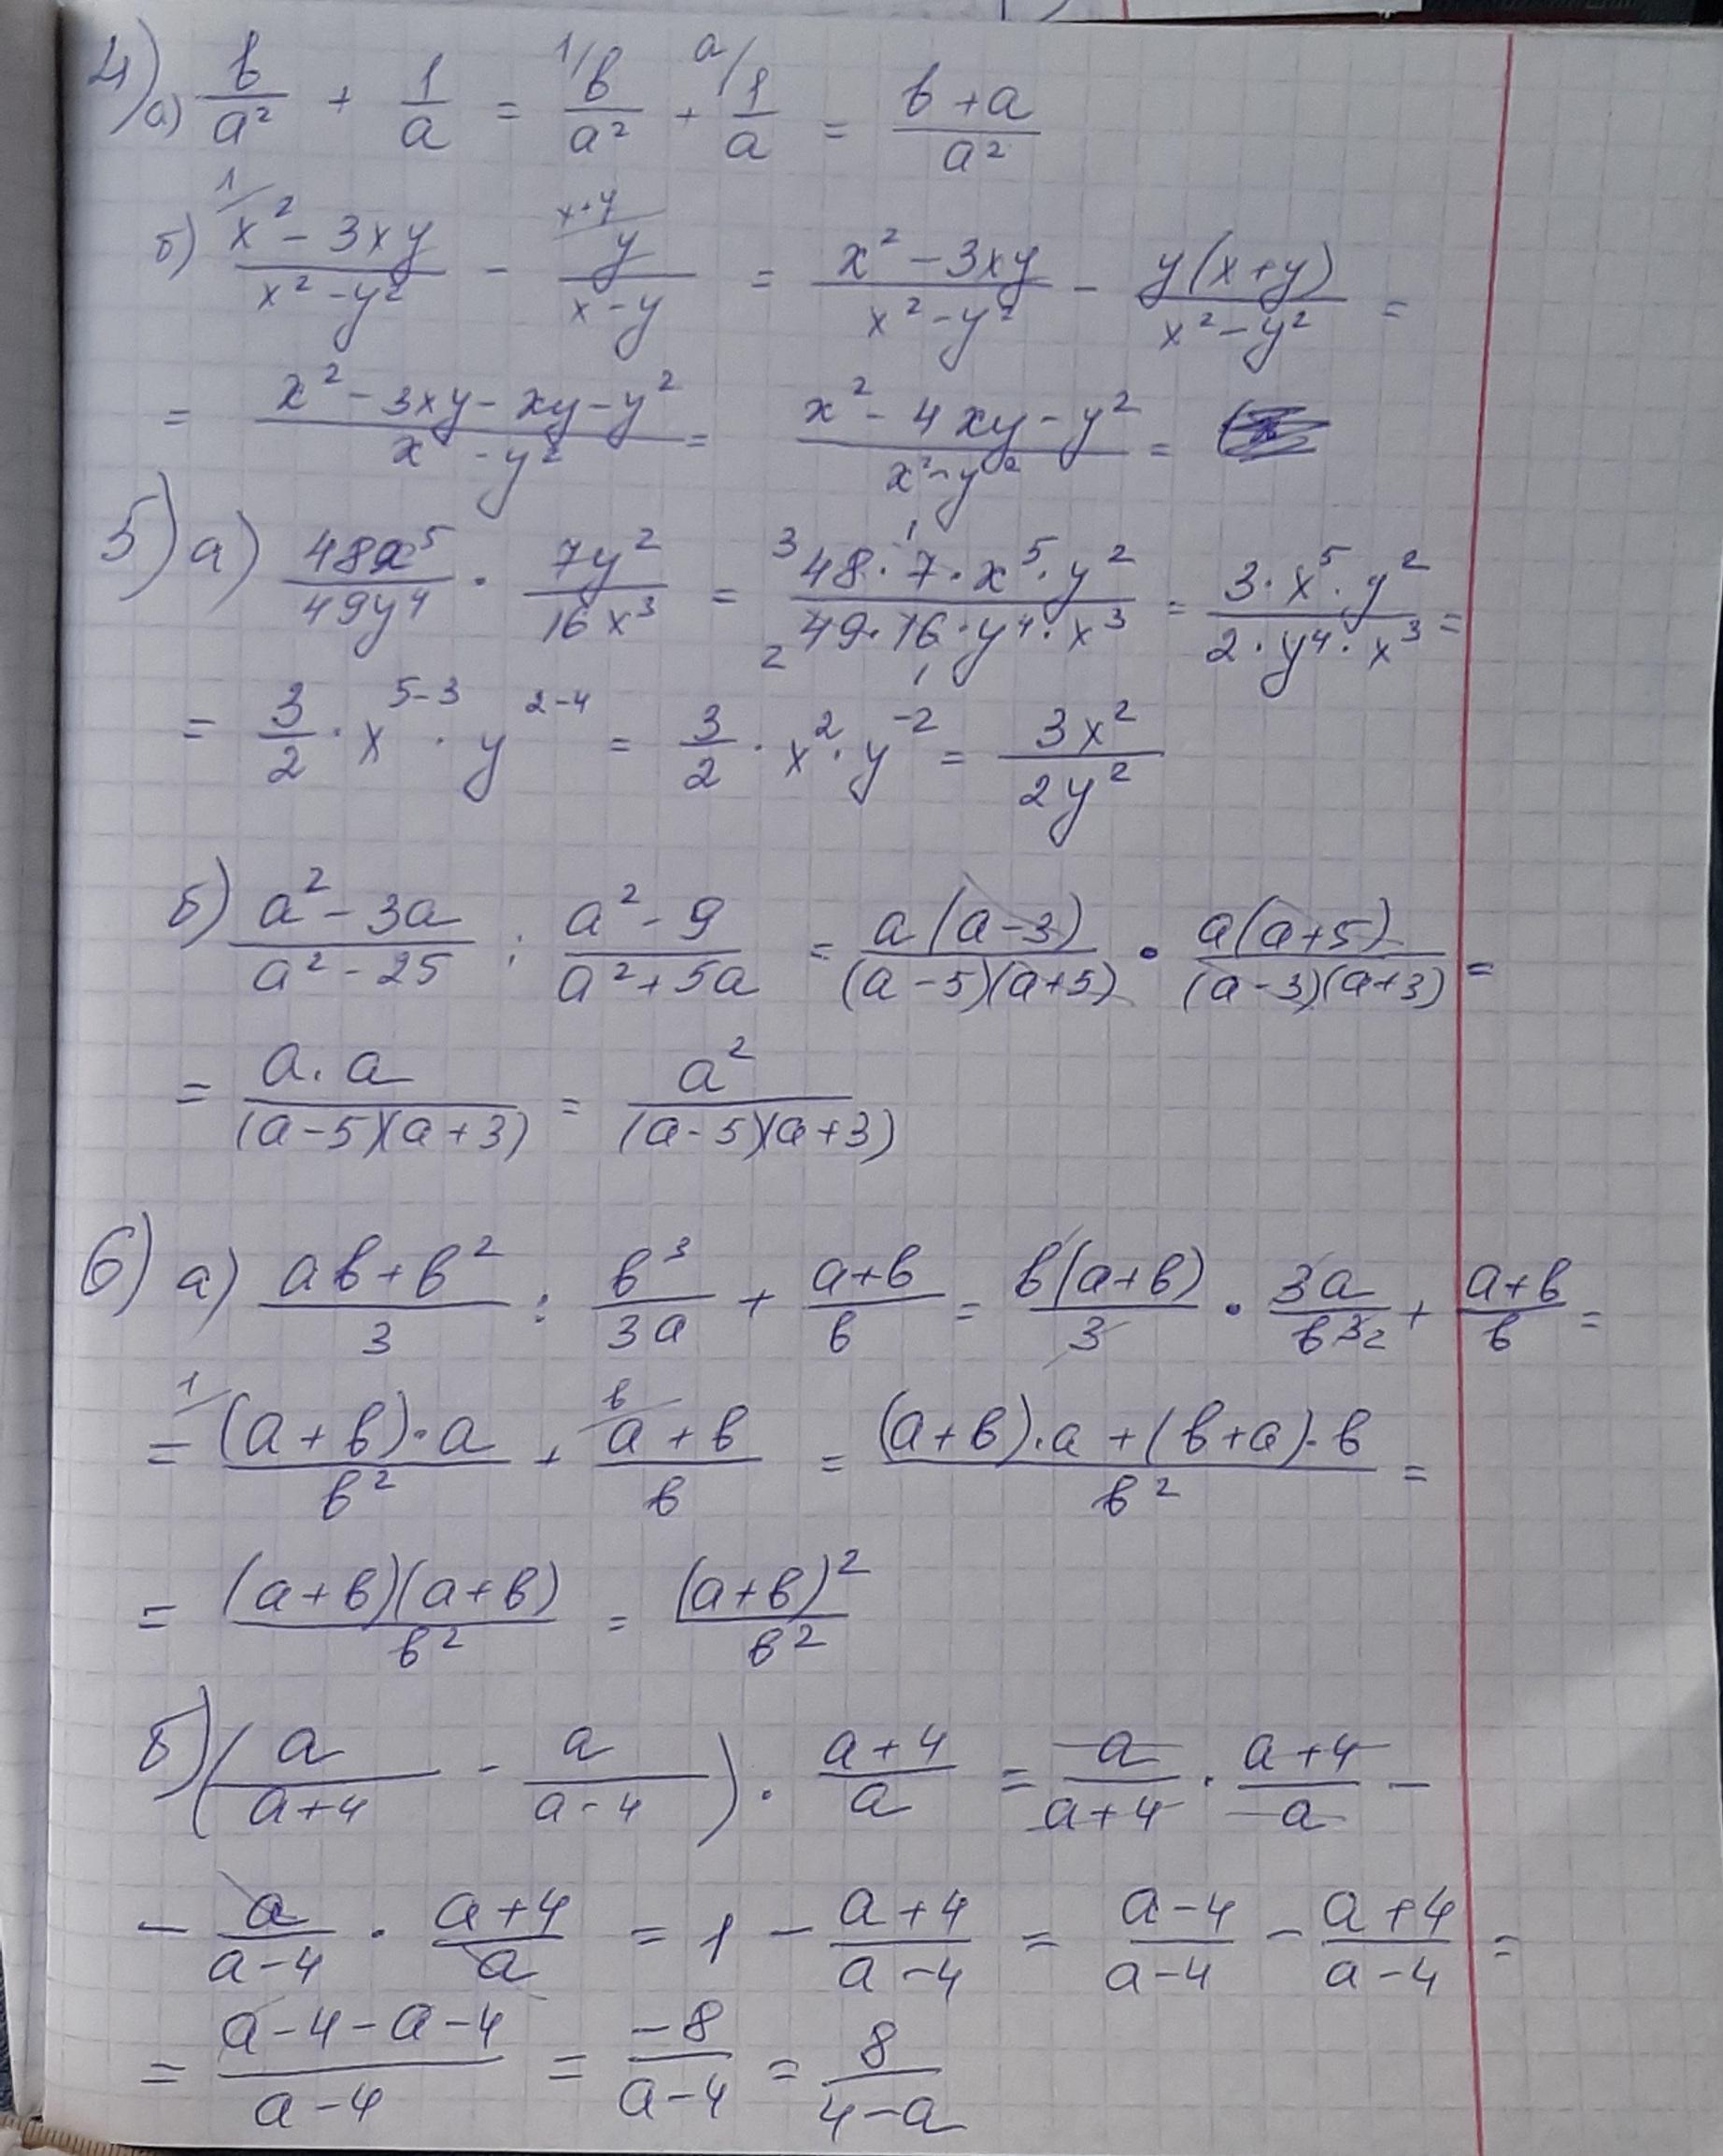 4) а) b/a² + 1/a = ¹/ b/a² + ᵃ/ 1/a = (b+a)/a²
б) ¹/ (x² - 3xy)/(x² - y²) - ˣ⁺ʸ/ y/(x-y) = (x² - 3xy)/(x² - y²) - y(x+y)/(x² - y²) =
= (x² - 3xy - xy - y²)/(x² - y²) = (x² - 4xy - y²)/(x² - y²) =
5) а) 48x⁵/49y⁴ · 7y²/16x³ = (48 · 7 · x⁵ · y²)/(49 · 16 · y⁴ · x³) = (3 · x⁵ · y²)/(2 · y⁴ · x³) =
= 3/2 · x⁵⁻³ · y²⁻⁴ = 3/2 · x² · y⁻² = 3x²/2y²
б) (a² - 3a)/(a² - 25) : (a² - 9)/(a² + 5a) = a(a-3)/(a-5)(a+5) · a(a+5)/(a-3)(a+3) =
= a·a/(a-5)(a+3) = a²/(a-5)(a+3)
6) а) (ab+b²)/3 : b³/3a + (a+b)/b = b(a+b)/3 · 3a/b³ ² + (a+b)/b =
= ¹/ (a+b)·a/b² + ᵇ/ (a+b)/b = ((a+b)·a + (b+a)·b)/b² =
= (a+b)(a+b)/b² = (a+b)²/b²
б) (a/(a+4) - a/(a-4)) · (a+4)/a = a/(a+4) · (a+4)/a -
- a/(a-4) · (a+4)/a = 1 - (a+4)/(a-4) = (a-4)/(a-4) - (a+4)/(a-4) =
= (a-4-a-4)/(a-4) = -8/(a-4) = 8/(4-a)